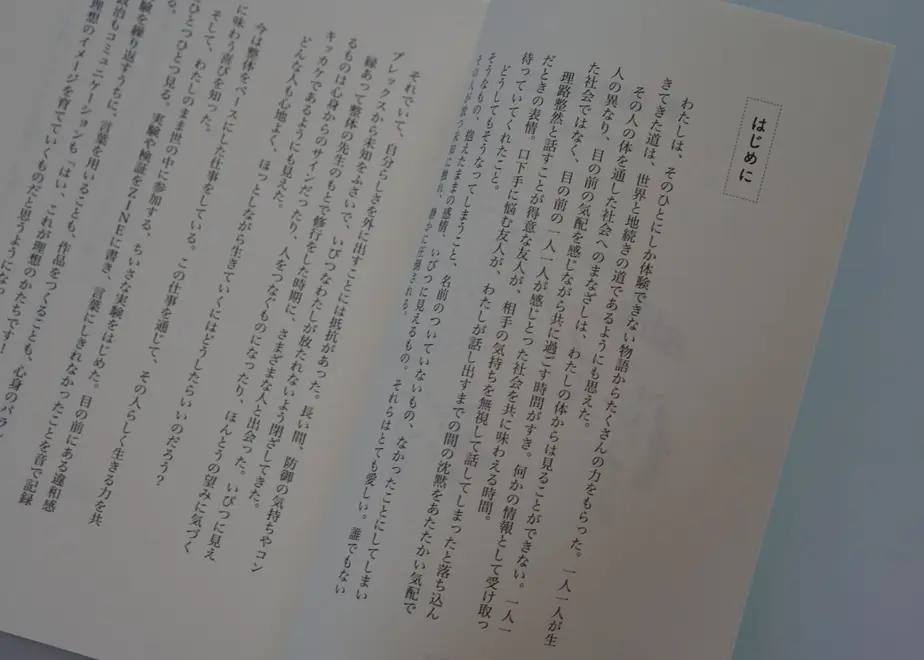 はじめに
わたしは、そのひとにしか体験できない物語からたくさんの力をもらった。一人一人が生
きてきた道は、世界と地続きの道であるようにも思えた。
その人の体を通した社会へのまなざしは、わたしの体からは見ることができない。一人一
人の異なり、目の前の気配を感じながら共に過ごす時間がすき。何かの情報として受け取っ
た社会ではなく、目の前の一人一人が感じとった社会を共に味わえる時間。
理路整然と話すことが得意な友人が、相手の気持ちを無視して話してしまったと落ち込ん
だときの表情。口下手に悩む友人が、わたしが話し出すまでの間の沈黙をあたたかい気配で
待っていてくれたこと。
どうしてもそうなってしまうこと、名前のついていないもの、なかったことにしてしまい
そうなもの、抱えたままの感情、いびつに見えるもの。それらはとても愛しい。誰でもない
静かに圧倒される。
それでいて、自分らしさを外に出すことには抵抗があった。長い間、防御の気持ちやコン
プレックスから未知をふさいで、いびつなわたしが放たれないよう閉ざしてきた。
縁あって整体の先生のもとで修行をした時期に、さまざまな人と出会った。いびつに見え
るものは心身からのサインだったり、人をつなぐものになったり、ほんとうの望みに気づく
キッカケであるようにも見えた。
どんな人も心地よく、ほっとしながら生きていくにはどうしたらいいのだろう？
今は整体をベースにした仕事をしている。この仕事を通じて、その人らしく生きる力を共
に味わう喜びを知った。
そして、わたしのまま世の中に参加する、ちいさな実験をはじめた。目の前にある違和感
ひとつひとつ見る。実験や検証をZINEに書き、言葉にしきれなかったことを音で記録
する。
験を繰り返すうちに、言葉を用いることも、作品をつくることも、心身のバラン
政治もコミュニケーションも「はい、これが理想のかたちです！
理想のイメージを育てていくものだと思うようになっ